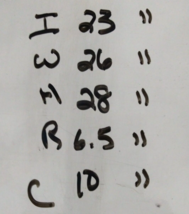 I 23 "
W 26 "
H 28 "
R 6.5 "
C 10 "